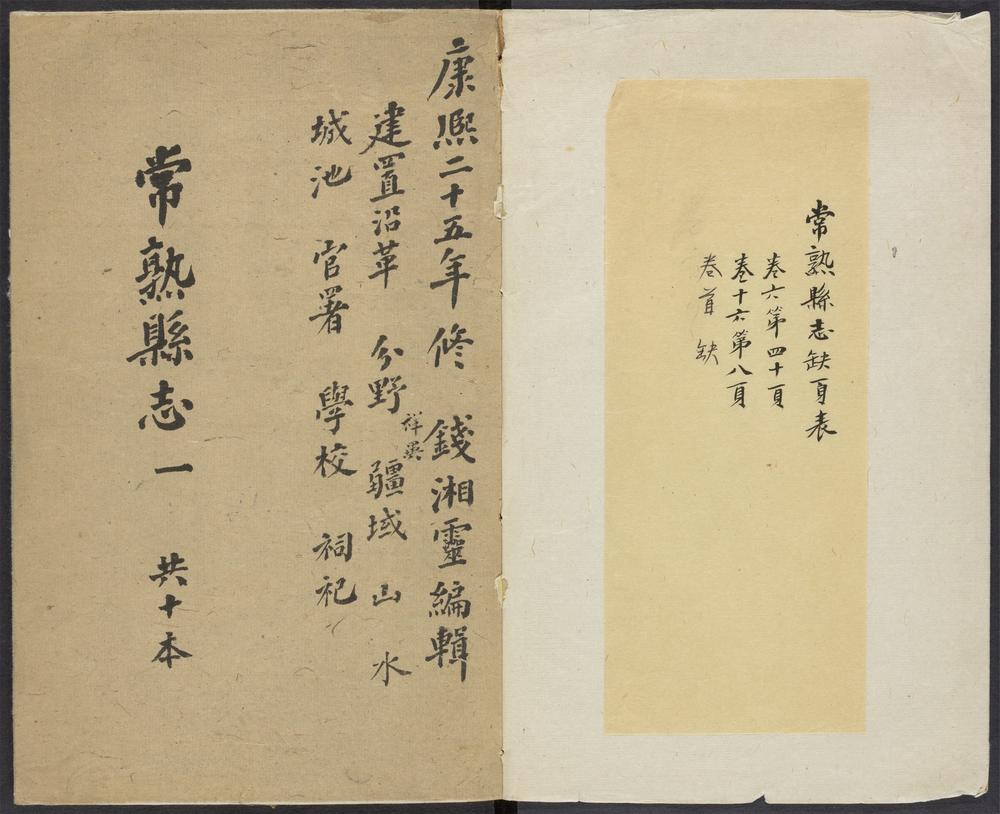 常熟縣志缺頁表
卷六第四十頁
卷十六第八頁
卷首缺
康熙二十五年修 錢湘靈編輯
建置沿革 分野 祥異 疆域 山 水
城池 官署 學校 祠祀
常熟縣志 一 共十本